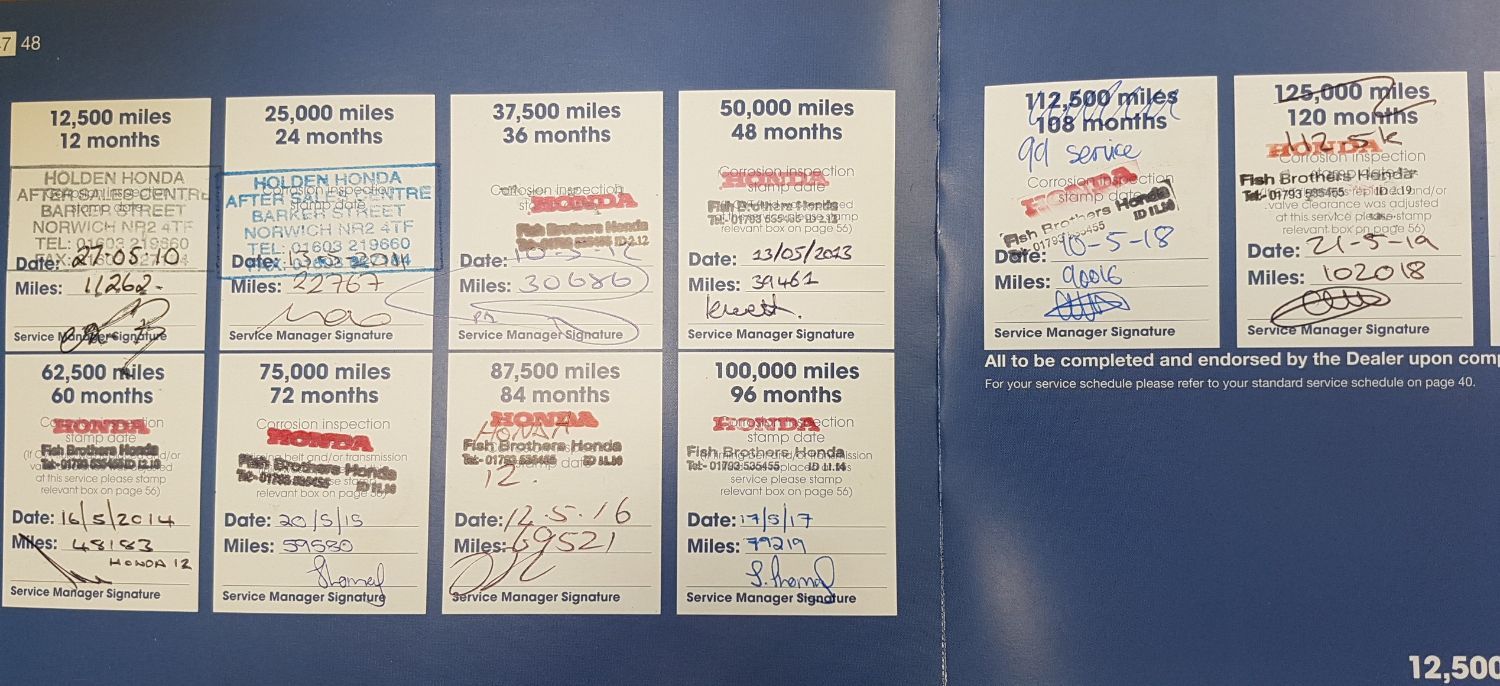 47 48
12,500 miles
12 months
HOLDEN HONDA
AFTER SALES CENTRE
BARKER STREET
NORWICH NR2 4TF
TEL: 01603 219660
Date: 27.05.10
Miles: 11262
Service Manager Signature
25,000 miles
24 months
Corrosion inspection
stamp date
HOLDEN HONDA
AFTER SALES CENTRE
BARKER STREET
NORWICH NR2 4TF
TEL: 01603 219660
Date:
Miles: 22767
Service Manager Signature
37,500 miles
36 months
Corrosion inspection
HONDA
Fish Brothers Honda
Tel:- 01793 535455 ID 2.12
Date: 10-5-12
Miles: 30686
Service Manager Signature
50,000 miles
48 months
Corrosion inspection
HONDA
stamp date
Fish Brothers Honda
relevant box on page 56)
Date: 13/05/2013
Miles: 39461
Service Manager Signature
62,500 miles
60 months
Corrosion inspection
HONDA
stamp date
Fish Brothers Honda
at this service please stamp
relevant box on page 56)
Date: 16/5/2014
Miles: 48183
HONDA 12
Service Manager Signature
75,000 miles
72 months
Corrosion inspection
HONDA
Fish Brothers Honda
relevant box on page 56)
Date: 20/5/15
Miles: 59580
Service Manager Signature
87,500 miles
84 months
HONDA
HONDA
Fish Brothers Honda
Tel:- 01793 535455
12.
Date: 12.5.16
Miles: 69521
Service Manager Signature
100,000 miles
96 months
Corrosion inspection
HONDA
stamp date
Fish Brothers Honda
Tel:- 01793 535455
service please stamp
relevant box on page 56)
Date: 17/5/17
Miles: 79219
Service Manager Signature
112,500 miles
108 months
9d service
Corrosion inspection
HONDA
stamp date
Fish Brothers Honda
Date: 10-5-18
Miles: 90016
Service Manager Signature
125,000 miles
120 months
112.5k
HONDA
Corrosion inspection
Fish Brothers Honda
Tel:- 01793 535455 ID 2.19
valve clearance was adjusted
at this service please stamp
relevant box on page 56)
Date: 21-5-19
Miles: 102018
Service Manager Signature
All to be completed and endorsed by the Dealer upon
For your service schedule please refer to your standard service schedule on page 40.
12,500